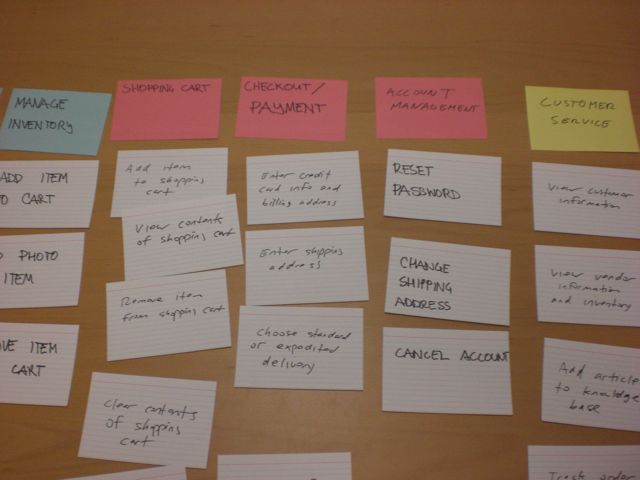 MANAGE
INVENTORY
ADD ITEM
TO CART
PHOTO
ITEM
ITEM
CART
SHOPPING CART
Add item
to shopping
cart
View contents
of shopping cart
Remove item
from shopping cart
Clear contents
of shopping
cart
CHECKOUT/
PAYMENT
Enter credit
card info and
billing address
Enter shipping
address
Choose standard
or expedited
delivery
ACCOUNT
MANAGEMENT
RESET
PASSWORD
CHANGE
SHIPPING
ADDRESS
CANCEL ACCOUNT
CUSTOMER
SERVICE
View customer
information
View vendor
information
and inventory
Add article
to knowledge
base
Track order